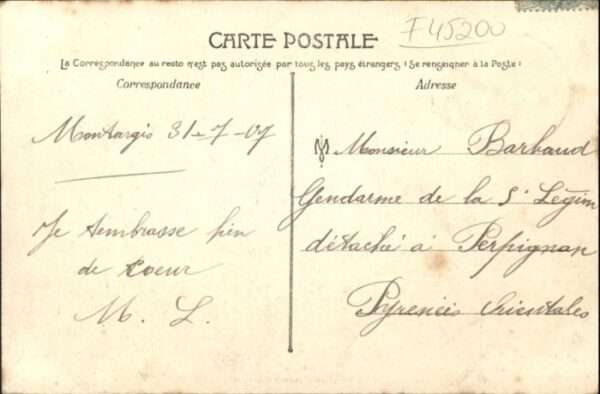 F45200
CARTE POSTALE
La Correspondance au recto n'est pas autorisée par tous les pays étrangers (Se renseigner à la Poste)
Correspondance
Adresse
Montargis 31-7-07
Je tembrasse bien
de coeur
M. L.
Monsieur Barbaud
Gendarme de la 5e Légion
détaché à Perpignan
Pyrenées Orientales